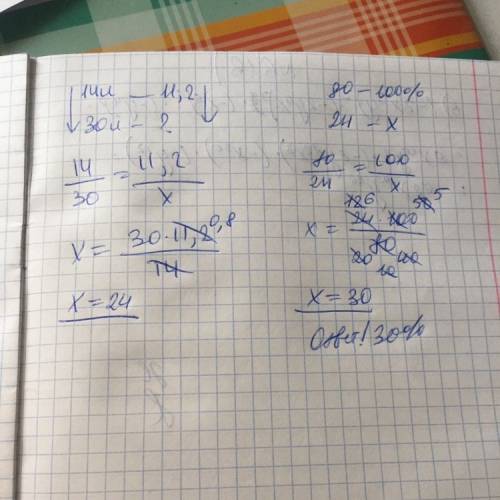 14л — 11,2
30л — ?
14/30 = 11,2/x
x = 30 · 11,2 0,8 / 14
x = 24
80 — 100%
24 — x
80/24 = 100/x
x = 24 · 100 / 80
x = 30
Ответ! 30%